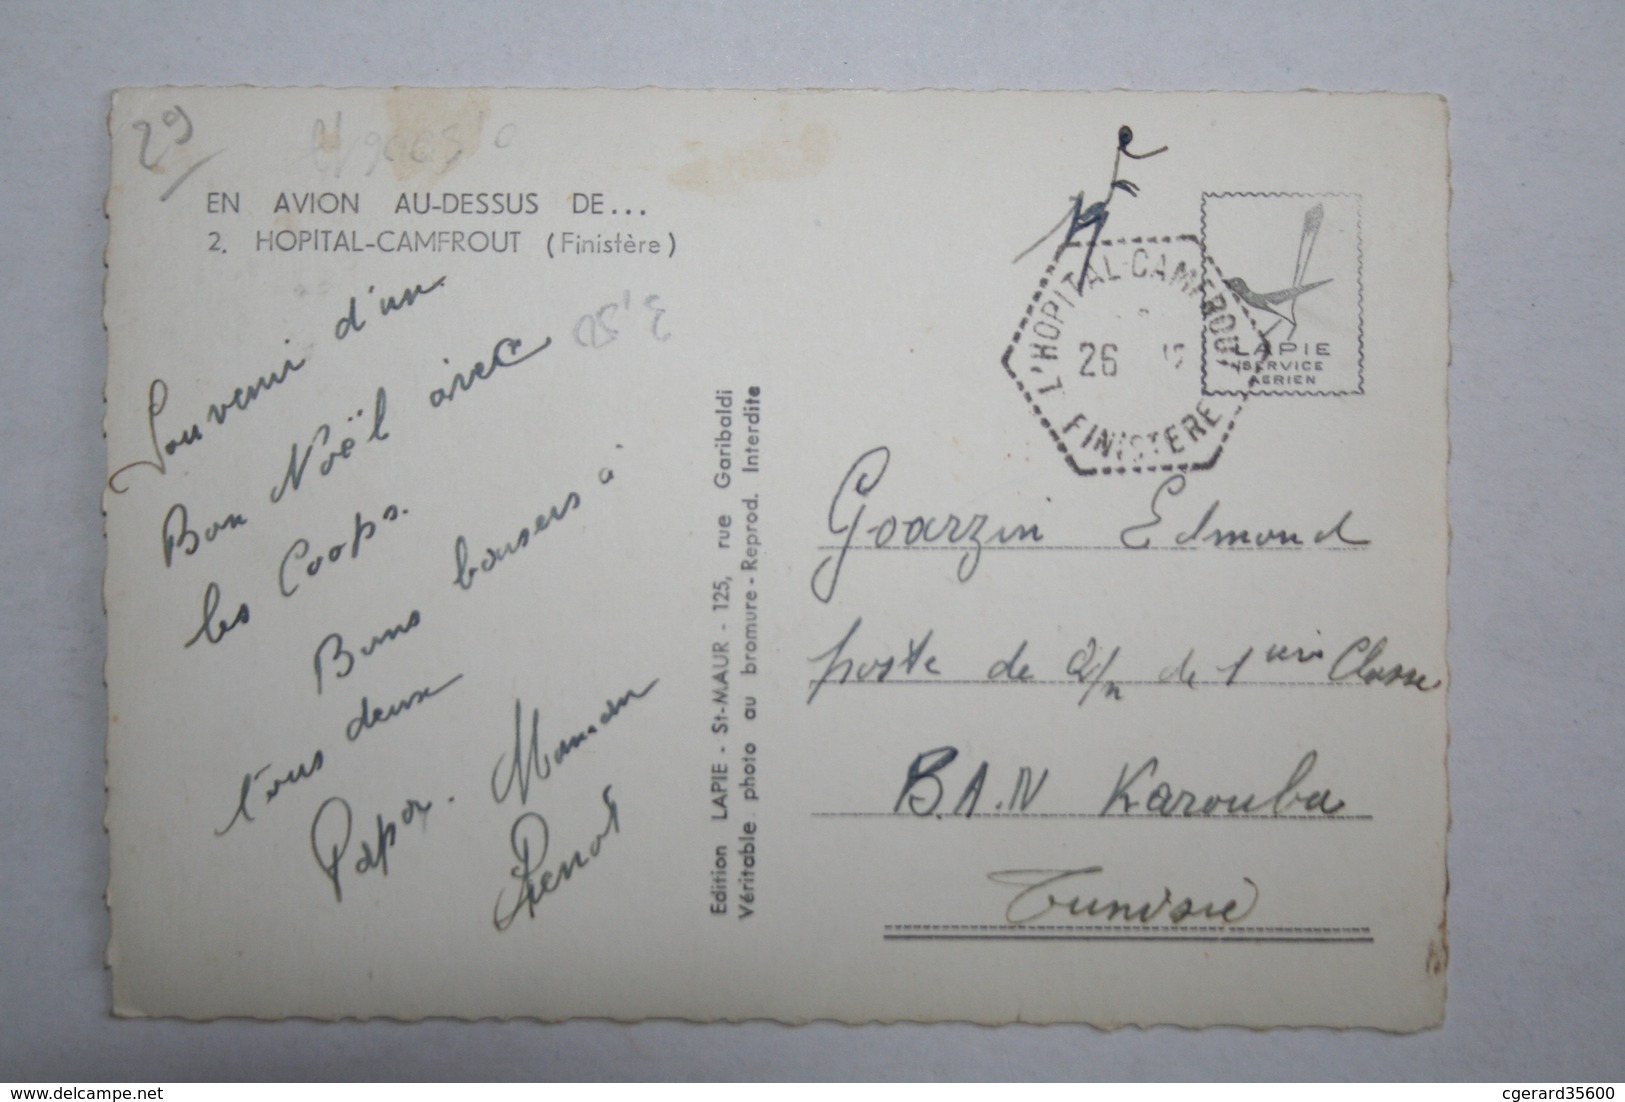 29
EN AVION AU-DESSUS DE...
2. HOPITAL-CAMFROUT (Finistère)
3,50
Souvenir d'un
Bon Noël avec
les Coops.
Bons baisers à
tous deux
Papa. Maman
Edition LAPIE - St-MAUR - 125, rue Garibaldi
Véritable photo au bromure - Reprod. Interdite
L'HOPITAL-CAMFROUT
26
FINISTERE
LAPIE
SERVICE
AERIEN
Goarzin Edmond
poste de 2/m de 1ere Classe
B.A.N Karouba
Tunisie
delcampe.net
cgerard35600